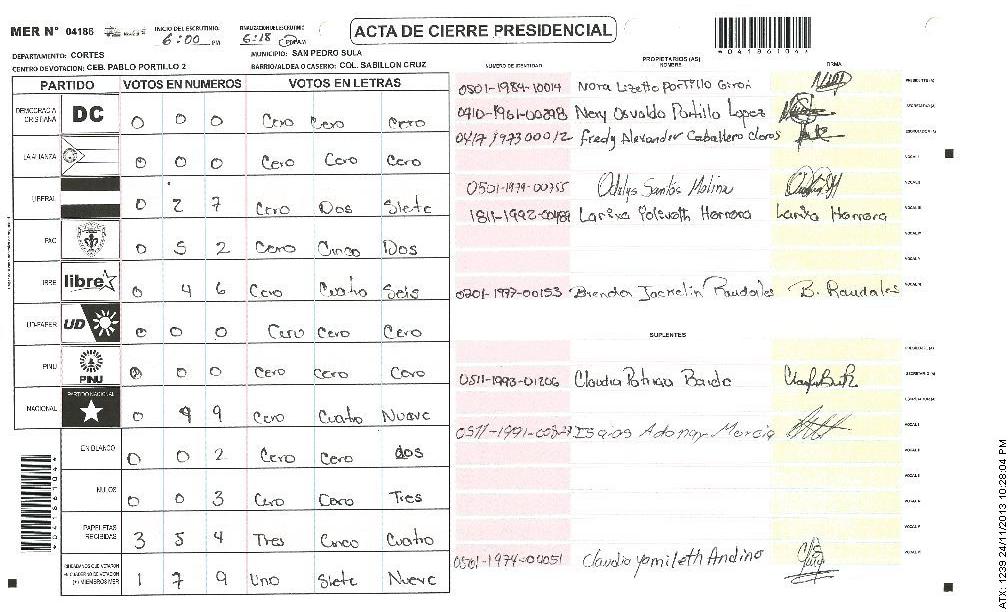 MER N° 04186 INICIO DEL ESCRUTINIO: 6:00 PM FINALIZACION DEL ESCRUTINIO: 6:18 PM
ACTA DE CIERRE PRESIDENCIAL
DEPARTAMENTO: CORTES MUNICIPIO: SAN PEDRO SULA
CENTRO DE VOTACION: CEB. PABLO PORTILLO 2 BARRIO/ALDEA O CASERIO: COL. SABILLON CRUZ
PARTIDO VOTOS EN NUMEROS VOTOS EN LETRAS
DEMOCRACIA CRISTIANA DC 0 0 0 Cero Cero Cero
LA ALIANZA 0 0 0 Cero Cero Cero
LIBERAL 0 2 7 Cero Dos Siete
PAC 0 5 2 Cero Cinco Dos
LIBRE libre 0 4 6 Cero Cuatro Seis
UD-FAPER UD 0 0 0 Cero Cero Cero
PINU PINU 0 0 0 Cero Cero Cero
NACIONAL PARTIDO NACIONAL 0 4 9 Cero Cuatro Nueve
EN BLANCO 0 0 2 Cero Cero dos
NULOS 0 0 3 Cero Cero Tres
PAPELETAS RECIBIDAS 3 5 4 Tres Cinco Cuatro
CIUDADANOS QUE VOTARON 1 7 9 Uno Siete Nueve
NUMERO DE IDENTIDAD PROPIETARIOS (AS) NOMBRE FIRMA
0501-1984-10014 Nora Lizette Portillo Giron
0410-1961-00298 Nery Osvaldo Portillo Lopez
0417 1973 00012 Fredy Alexander Caballero Claros
0501-1979-00755 Odalys Santos Molina
Herrera Herrera
0201-1997-00153 Brenda Jackelin Raudales B. Raudales
SUPLENTES
0511-1993-01206 Claudia Patricia Barde
Isaias Adonay Mercia
0501-1974-04051 Claudia Yamileth Andino
ATX: 1239 24/11/2013 10:28:04 PM